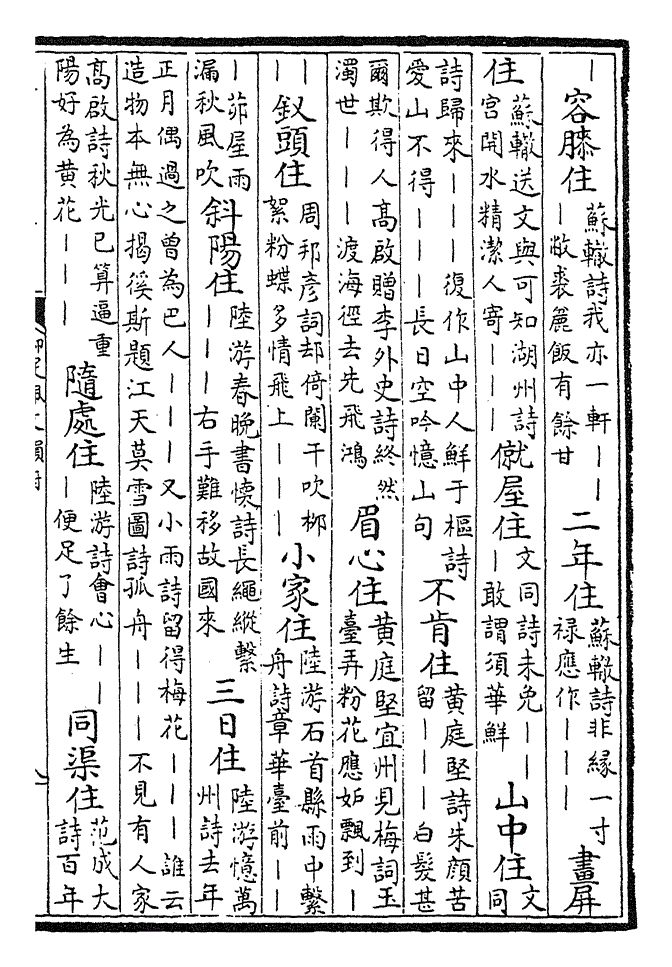 丨容膝住蘇轍詩我亦一軒丨丨丨敝裘麤飯有餘甘二年住蘇轍詩非緣一寸祿應作丨丨丨畫屏
住蘇轍送文與可知湖州詩宮開水精潔人寄丨丨丨僦屋住文同詩未免丨丨丨敢謂須華鮮山中住文同
詩歸來丨丨丨復作山中人鮮于樞詩愛山不得丨丨丨長日空吟憶山句不肯住黄庭堅詩朱顏苦留丨丨丨白髮甚
爾欺得人高啟贈李外史詩終然濁世丨丨丨渡海徑去先飛鴻眉心住黄庭堅宜州見梅詞玉臺弄粉花應妬飄到丨
丨丨釵頭住周邦彦詞却倚闌干吹柳絮粉蝶多情飛上丨丨丨小家住陸游石首縣雨中繫舟詩章華臺前丨丨
丨茆屋雨漏秋風吹斜陽住陸游春晚書懷詩長繩縱繫丨丨丨右手難移故國來三日住陸游憶萬州詩去年
正月偶過之曾為巴人丨丨丨又小雨詩留得梅花丨丨丨誰云造物本無心揭徯斯題江天莫雪圖詩孤舟丨丨丨不見有人家
高啟詩秋光已算逼重陽好為黄花丨丨丨隨處住陸游詩會心丨丨丨便足了餘生同渠住范成大詩百年